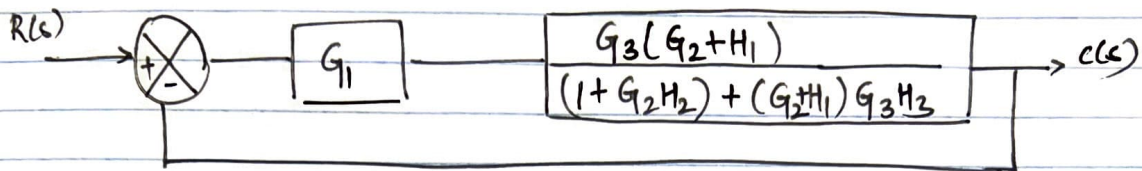 R(s)
+
-
G1
G3(G2+H1)
(1+G2H2)+(G2+H1)G3H3
C(s)